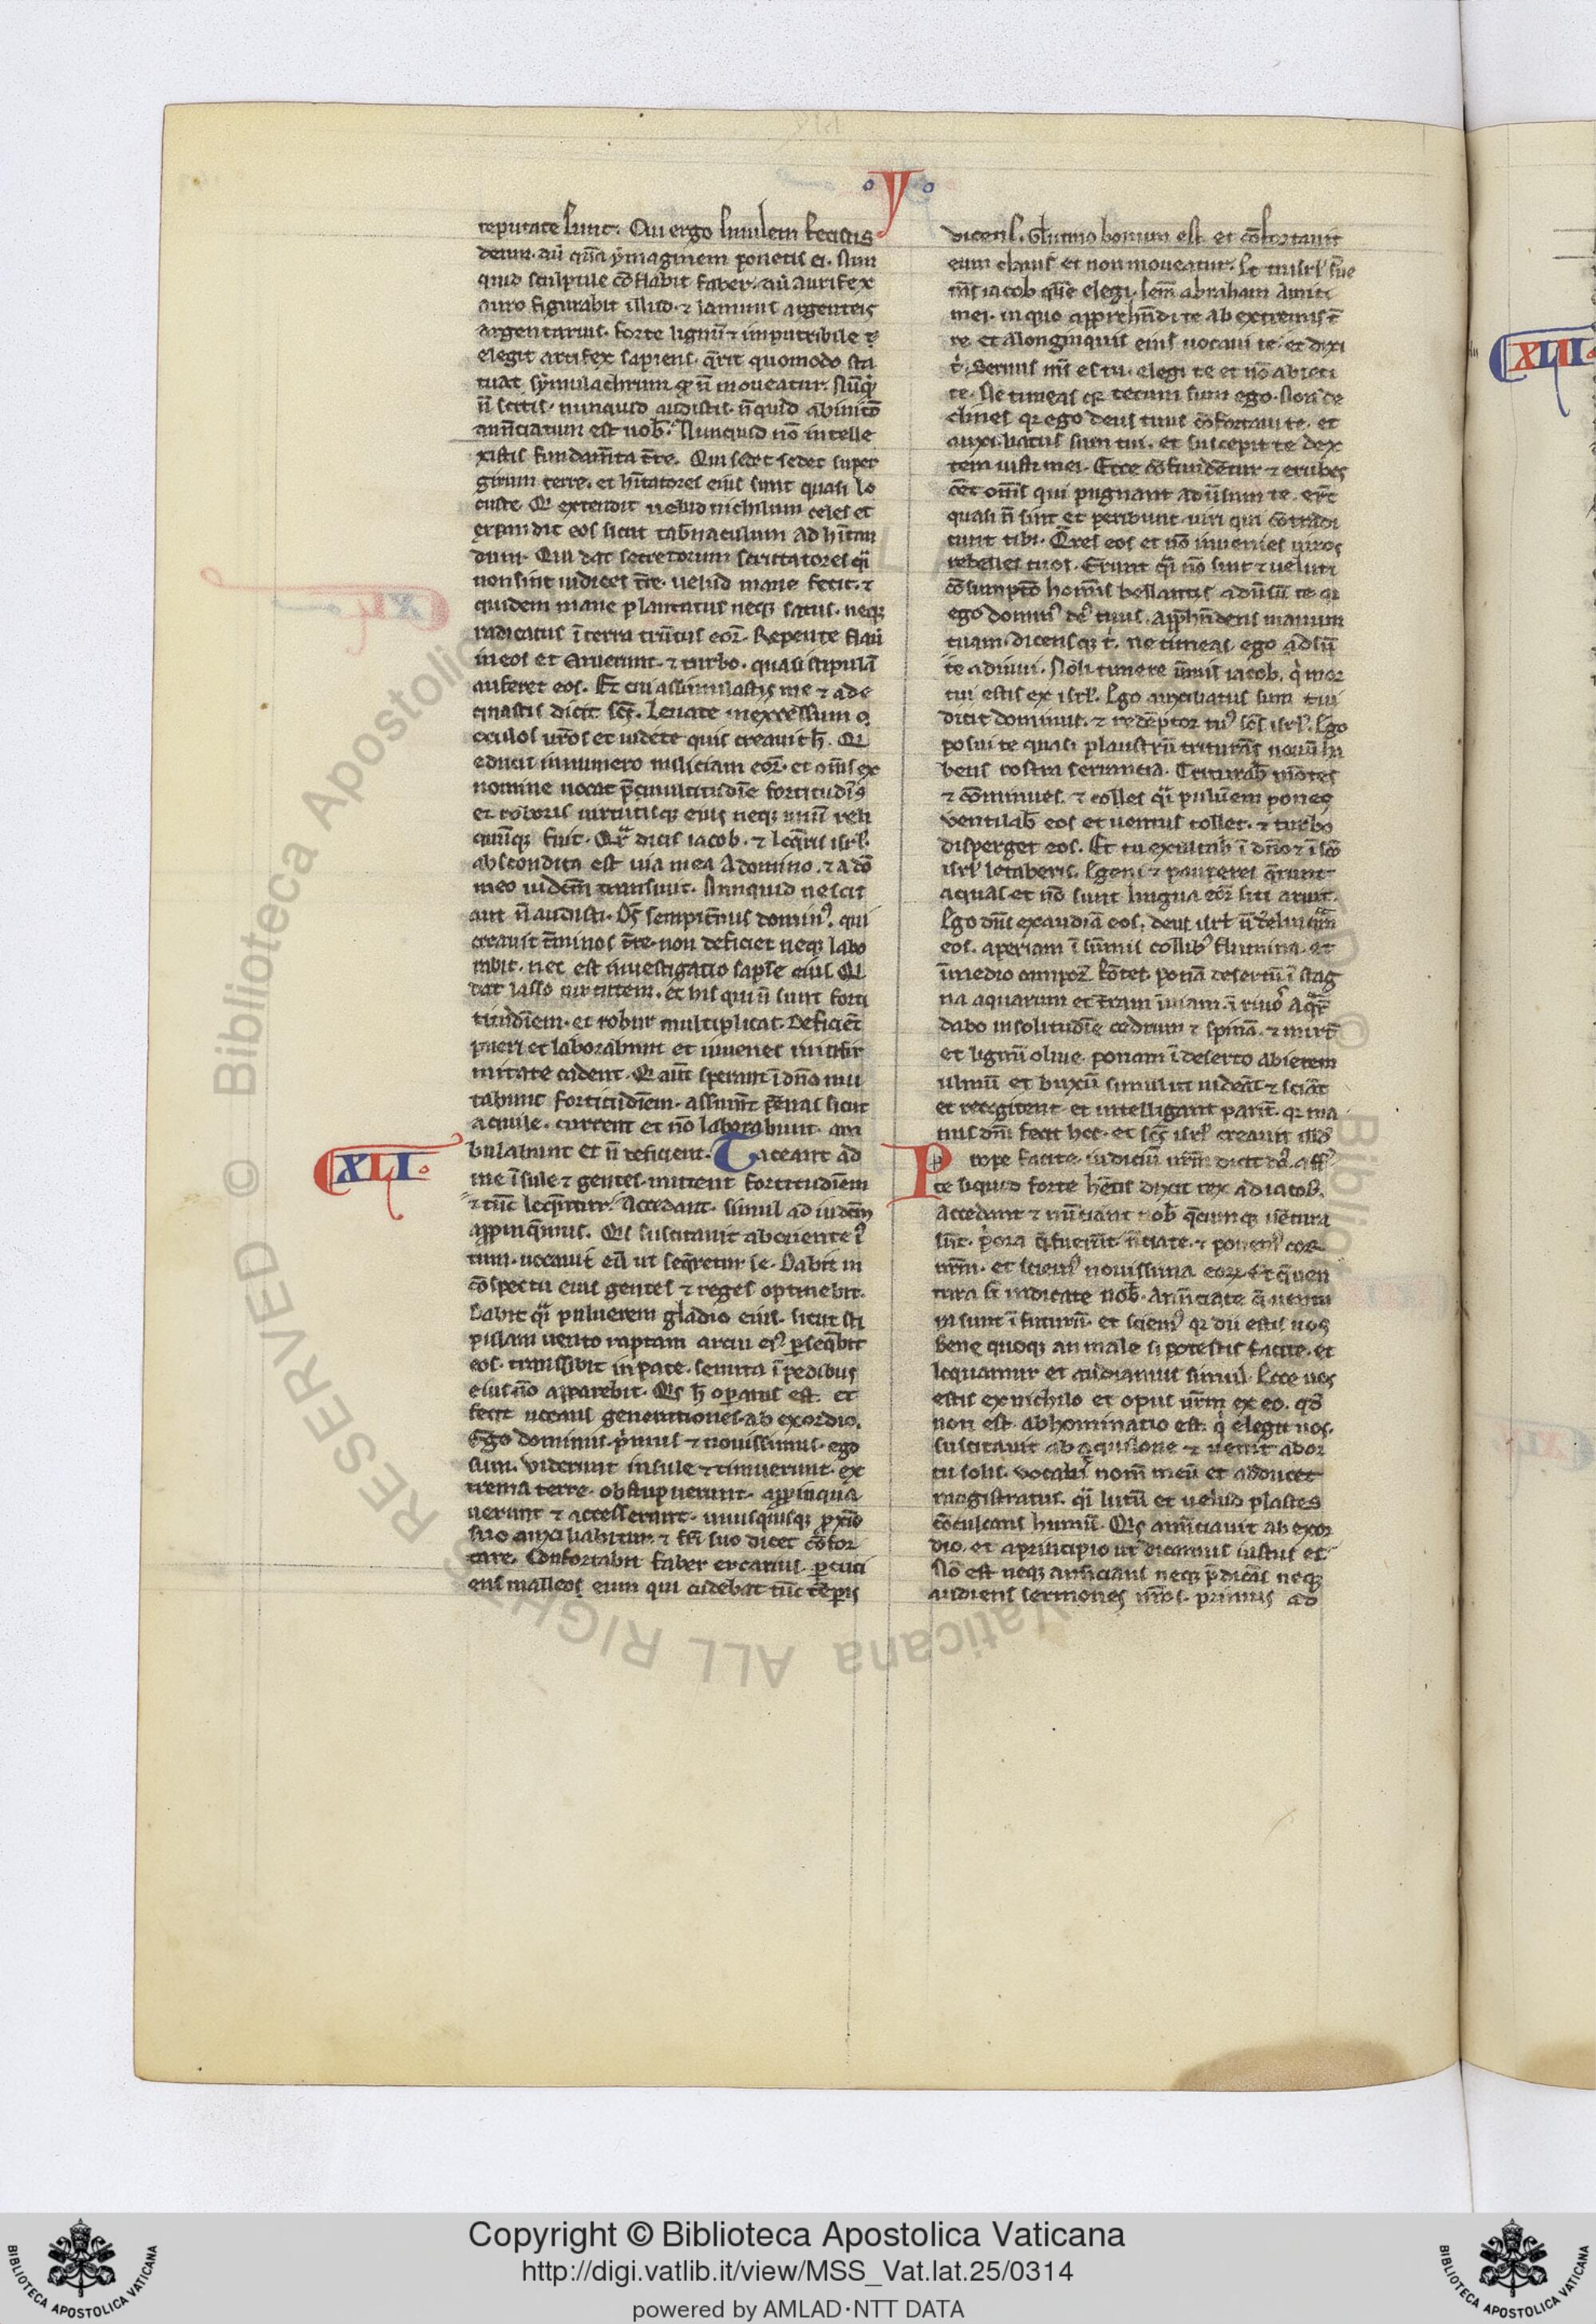 Y
reputate sunt. Cui ergo similem fecistis
deum. aut quā ymaginem ponetis ei. Nun
quid sculptile cōflabit faber. aut aurifex
auro figurabit illud. ⁊ laminis argenteis
argentarius. forte lignū ⁊ imputribile
elegit artifex sapiens. q̄rit quomodo sta
tuat symulachrum qd̄ n̄ moueatur. Nūqd̄
n̄ scitis. nunquid audistis. nūquid ab initō
annūciatum est uob̄. Nunquid nō intelle
xistis fundam̄ta t̄re. Qui sedet super
girum terre. et hītatores eius sunt quasi lo
custe. Qi extendit uelud nichilum celos et
expandit eos sicut tab̄naculum ad hītan
dum. Qui dat secretorum scrutatores q̄i
non sint iudices t̄re. uelud inane fecit. ⁊
quidem mane plantatus neq; satus. neq;
radicatus ī terra trūcus eoꝝ. Repente flauit
in eos et aruerunt. ⁊ turbo. quasi stipulā
auferet eos. Et cui assimilastis me ⁊ ade
quastis dicit scs̄. Leuate in excelsum o
oculos ur̄os et uidete quis creauit h̄. Qi
educit in numero miliciam eoꝝ. et om̄s ex
nomine uocat p̄ multitudīe fortitudīs
et roboris uirtutisq; eius neq; unū reli
quūq; fuit. Qr̄ dicis iacob. ⁊ loq̄ris isrl̄.
abscondita est uia mea a domino. ⁊ a dō
meo iudm̄ transiuit. Nunquid nescis
aut n̄ audisti. Ds̄ sempit̄nus domin⁹. qui
creauit t̄minos t̄re. non deficiet neq; labo
rabit. nec est inuestigatio sapīe eius. Qi
dat lasso uirtutem. et his qui n̄ sunt forti
tudīem. et robur multiplicat. Deficiēt
pueri et laborabunt et iuuenes in īfir
mitate cadent. Qi aut̄ sperant ī dn̄o mu
tabunt fortitudīem. assumēt pēnas sicut
aquile. current et nō laborabunt. am
bulabunt et n̄ deficient. Taceant ad
XLI.
me īsule ⁊ gentes. mutent fortitudīem
⁊ tūc loq̄ntur. Accedant. simul ad iudm̄
app̄inq̄mus. Qis suscitauit ab oriente i⁹
tum. uocauit eū ut seq̄retur se. Dabit in
cōspectu eius gentes ⁊ reges optinebit.
Dabit q̄i puluerem gladio eius. sicut sti
pulam uento raptam arcui ei⁹. p̄seq̄bit̄
eos. transibit in pace. semita ī pedibus
eius nō apparebit. Qis h̄ op̄atus est. et
fecit uocans generationes ab exordio.
Ego dominus. p̄mus ⁊ nouissimus. ego
sum. Viderunt insule ⁊ timuerunt. ex
trema terre. obstupuerunt. app̄inqua
uerunt ⁊ accesserunt. unusquisq; p̄xīo
suo auxiliabitur. ⁊ fr̄i suo dicet cōfor
tare. Confortabit faber erarius. p̄cuti
ens malleo; eum qui cudebat tūc tēp̄is
dicens. Glutino bonum est. et cōfortauit
eum clauis et non moueatur. Et tu isrl̄ sue
m̄s iacob quē elegi. sem̄ abraham amici
mei. in quo apprehēdi te ab extremis t̄
re et a longinquis eius uocaui te. et dixi
t̄. Seruus m̄s es tu. elegi te et nō abieci
te. Ne timeas qr̄ tecum sum ego. Non de
clines qr̄ ego deus tuus cōfortaui te. et
auxiliatus sum tui. et suscepit te dex
tera iusti mei. Ecce cōfundētur ⁊ erubes
cēt om̄s qui pugnant aduersum te. erūt
quasi n̄ sint et peribunt uiri qui cōtradi
cunt tibi. Q̄res eos et nō inuenies uiros
rebelles tuos. Erunt q̄i nō sint ⁊ ueluti
cōsumptō homīs bellantis aduersū te qr̄
ego domin⁹ de⁹ tuus. app̄hēdens manum
tuam. dicensq; t̄. ne timeas. ego adsū
te adiuui. Noli timere u̅mis iacob. q̄i mor
tui estis ex isrl̄. Ego auxiliatus sum tui
dicit dominus. ⁊ redēptor tu⁹ scs̄ isrl̄. Ego
posui te quasi plaustrū trituras nouū ha
bens rostra serrancia. Triturab̄ mōtes
⁊ cōminues. ⁊ colles q̄i puluēem pones
Ventilab̄ eos et uentus tollet. ⁊ turbo
disperget eos. Et tu exultab̄ ī dn̄o ⁊ ī scō
isrl̄ letaberis. Egeni ⁊ pauperes q̄runt
aquas et nō sunt lingua eoꝝ siti aruit.
Ego dn̄s exaudiā eos. deus isrl̄ n̄ delinquā
eos. aperiam ī sūmis collib⁹ flumina. et
in medio campoꝝ fōtes. ponā desertū ī stag
na aquarum et t̄ram īuiam ī riuos aq̄ꝝ
dabo in solitudīe cedrum ⁊ spinā. ⁊ mirt̄
et lignū oliue. ponam ī deserto abietem
ulmū et buxū simul ut uideāt ⁊ sciāt
et recogitent et intelligant parit̄. qr̄ ma
nus dn̄i fecit hec. et scs̄ isrl̄ creauit illd̄
Prope facite iudiciū ur̄m dicit dn̄s. affer
te siquid forte hētis dixit rex ad iacob.
Accedant ⁊ nūciant nob̄ q̄cunq; uētura
sūt. p̄ora q̄ fuerūt. nūciate. ⁊ ponem⁹ cor
nr̄m. et sciem⁹ nouissima eoꝝ. Et q̄ uen
tura sūt indicate nob̄. Anūciate q̄ uentu
ra sunt ī futurū. et sciem⁹ qr̄ dii estis uos
bene quoq; an male si potestis facite. et
loquamur et audiamus simul. Ecce uos
estis ex nichilo et opus ur̄m ex eo. qd̄
non est. abhominatio est. q̄i elegit uos.
suscitauit ab aquilone ⁊ uenit ab or
tu solis. Vocabit nom̄ meū et adducet
magistratus. q̄i lutū et uelud plastes
cōculcans humū. Qis annūciauit ab exor
dio. et a principio ut dicamus iustus es
Nō est neq; anūcians neq; p̄dicās neq;
audiens sermones ur̄os. primus ad
XLII.
Copyright © Biblioteca Apostolica Vaticana
http://digi.vatlib.it/view/MSS_Vat.lat.25/0314
powered by AMLAD·NTT DATA
BIBLIOTECA APOSTOLICA VATICANA
BIBLIOTECA APOSTOLICA VATICANA
© Biblioteca Apostolica Vaticana ALL RIGHTS RESERVED